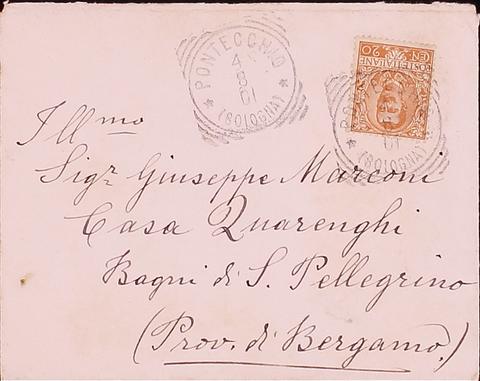 PONTECCHIO
4 8 01
(BOLOGNA)
POSTE ITALIANE
CEN. 20
01
(BOLOGNA)
Ill.mo
Sigr. Giuseppe Marconi
Casa Quarenghi
Bagni di S. Pellegrino
(Prov. di Bergamo.)